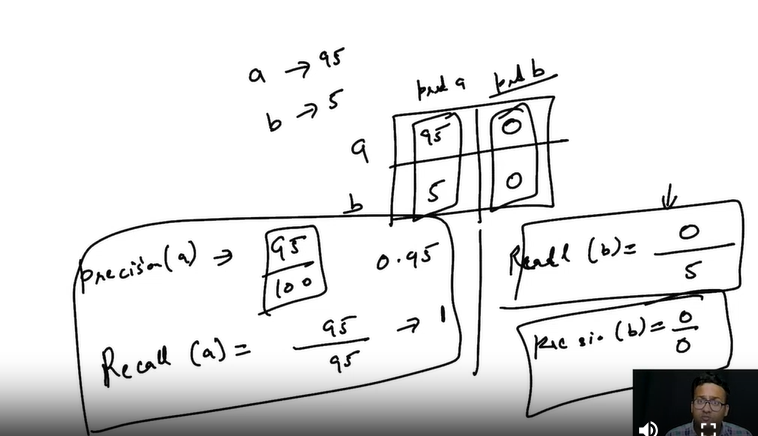 a → 95
b → 5
pred a pred b
a 95 0
b 5 0
precision(a) → 95/100 0.95
Recall (a) = 95/95 → 1
Recall (b) = 0/5
precision (b) = 0/0